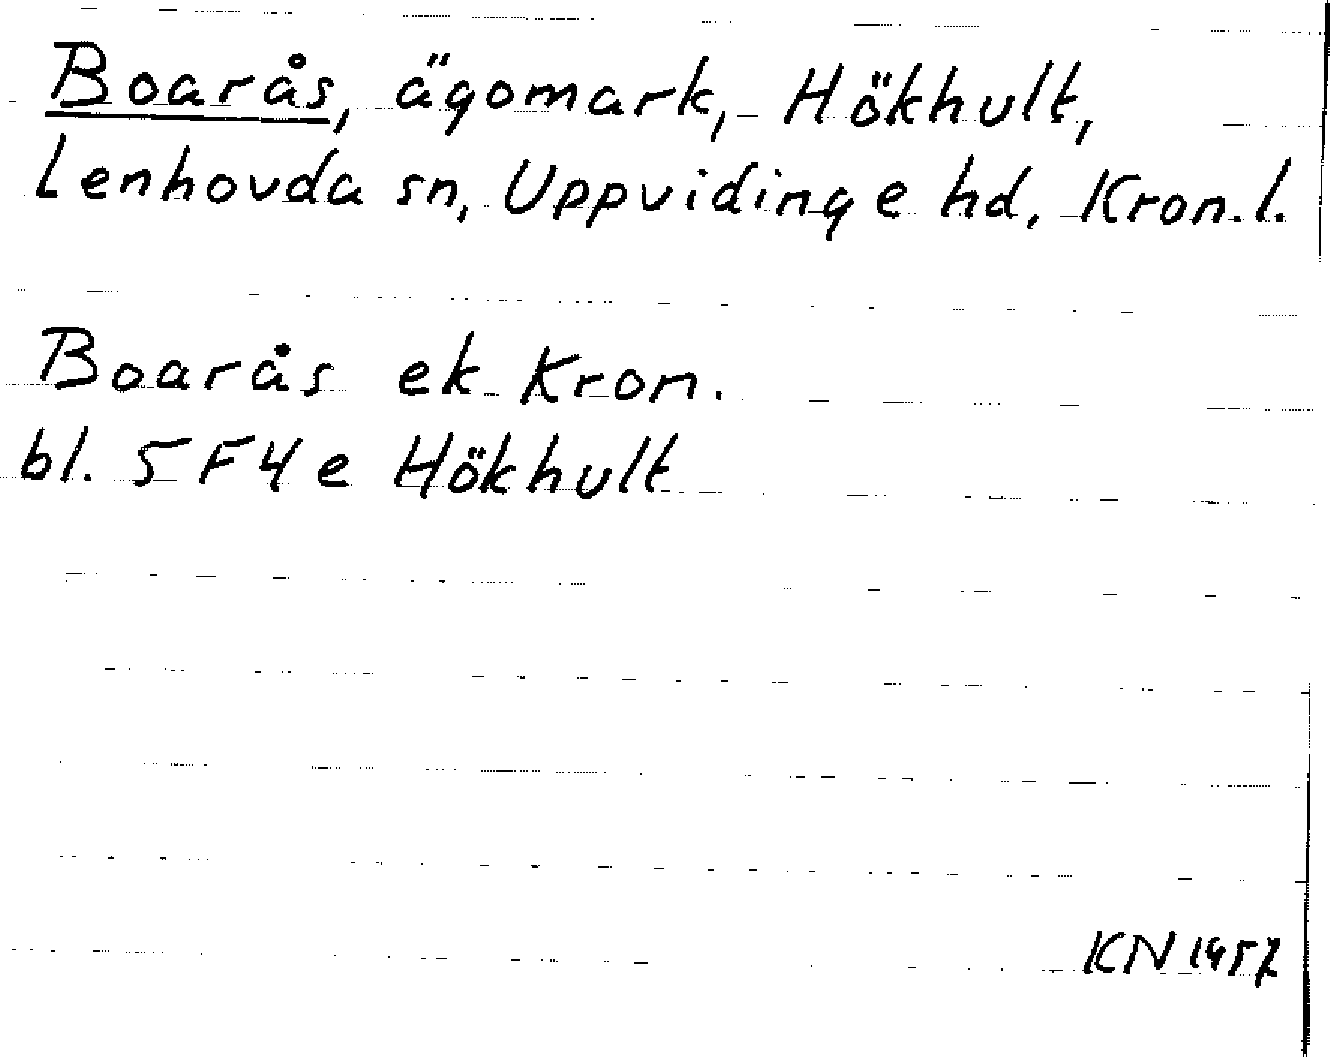 Boarås, ägomark, Hökhult,
Lenhovda sn, Uppvidinge hd, Kron. l.
Boarås ek Kron.
bl. 5F4e Hökhult
KN 1957